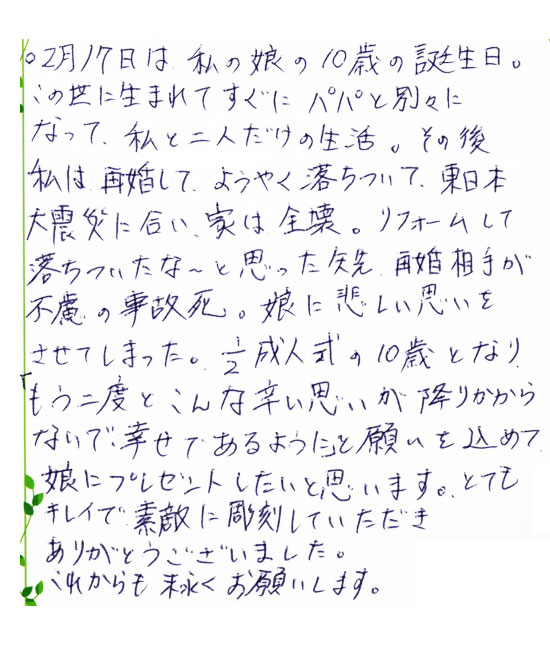 ○2月17日は 私の娘の10歳の誕生日。
この世に生まれてすぐに パパと別々に
なって、私と二人だけの生活。その後
私は 再婚して、ようやく落ちついて、東日本
大震災に合い、家は全壊。リフォームして
落ちついたな～と思った矢先 再婚相手が
不慮の事故死。娘に悲しい思いを
させてしまった。1/2成人式の10歳となり
「もう二度とこんな辛い思いが降りかから
ないで幸せであるように」と願いを込めて
娘にプレゼントしたいと思います。とても
キレイで素敵に彫刻していただき
ありがとうございました。
これからも末永くお願いします。